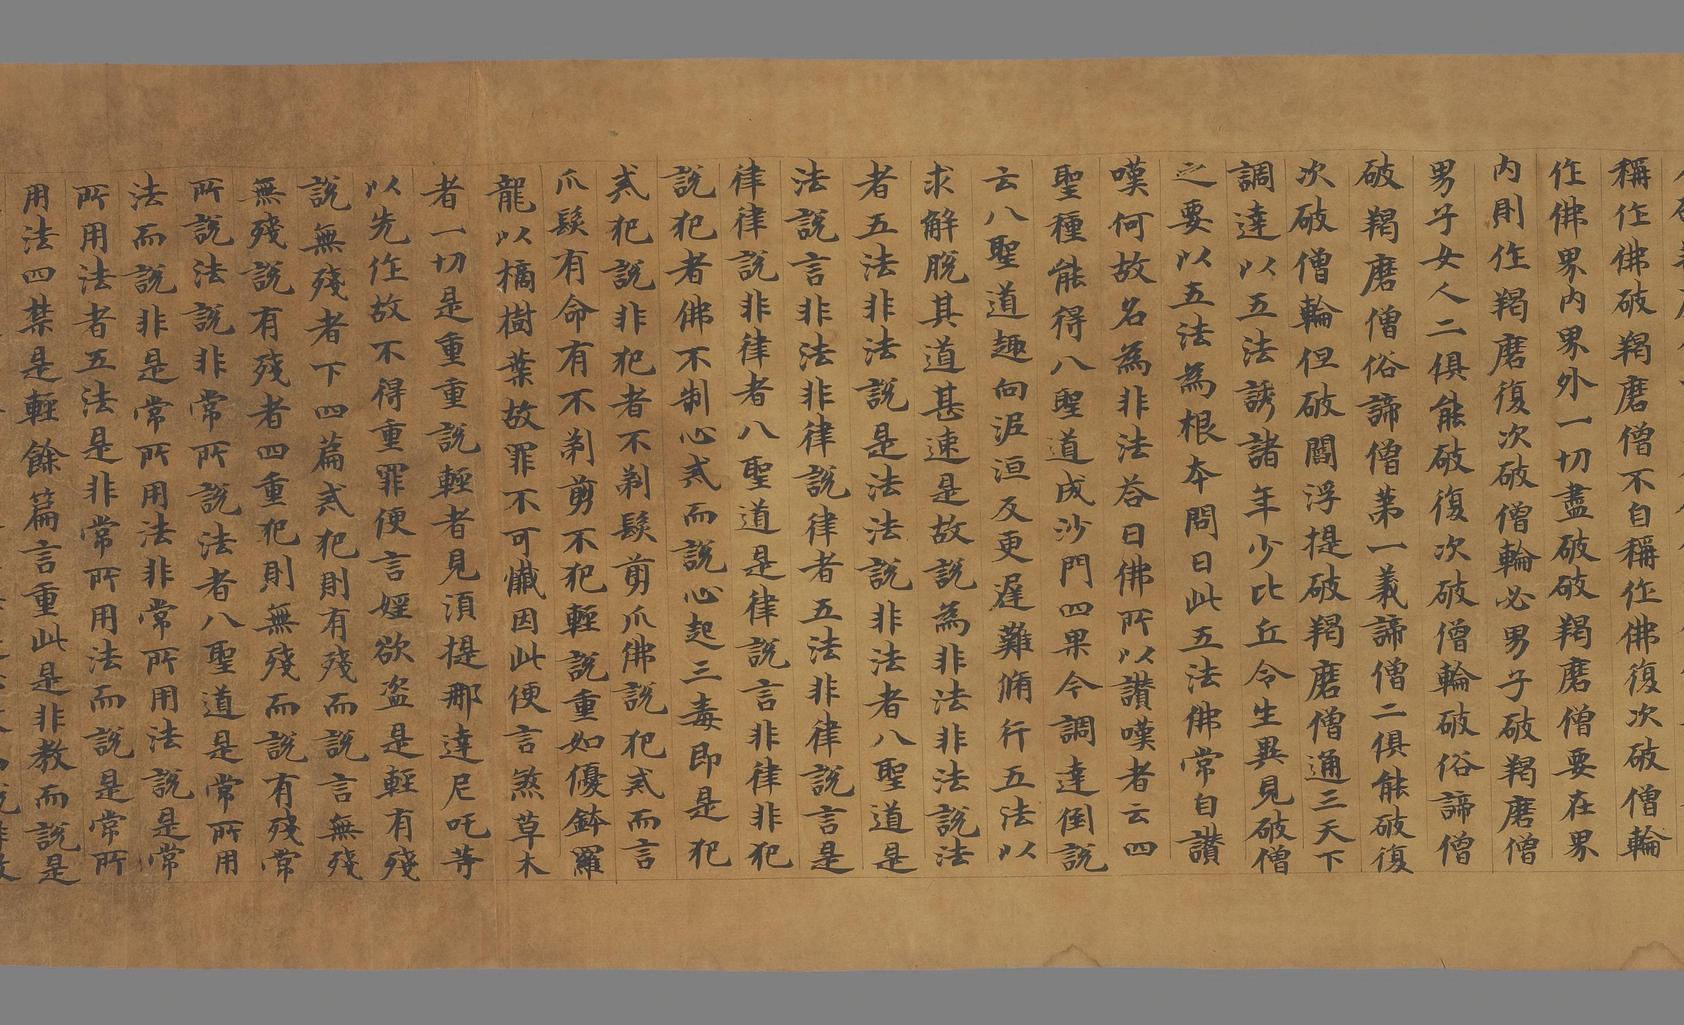 稱作佛破羯磨僧不自稱作佛復次破僧輪
作佛界內界外一切盡破破羯磨僧要在界
內則作羯磨復次破僧輪必男子破羯磨僧
男子女人二俱能破復次破僧輪破俗諦僧
破羯磨僧俗諦僧第一義諦僧二俱能破復
次破僧輪但破閻浮提破羯磨僧通三天下
調達以五法誘諸年少比丘令生異見破僧
之要以五法為根本問曰此五法佛常自讚
嘆何故名為非法荅曰佛所以讚嘆者云四
聖種能得八聖道成沙門四果今調達倒說
云八聖道趣向泥洹反更遲難脩行五法以
求解脫其道甚速是故說為非法非法說法
者五法非法說是法法說非法者八聖道是
法說言非法非律說律者五法非律說言是
律律說非律者八聖道是律說言非律非犯
說犯者佛不制心戒而說心起三毒即是犯
戒犯說非犯者不剃髮剪爪佛說犯戒而言
爪髮有命有不剃剪不犯輕說重如優鉢羅
龍以橘樹葉故罪不可懺因此便言煞草木
者一切是重重說輕者見湏提那達尼吒等
以先作故不得重罪便言婬欲盜是輕有殘
說無殘者下四篇戒犯則有殘而說言無殘
無殘說有殘者四重犯則無殘而說有殘常
所說法說非常所說法者八聖道是常所用
法而說非是常所用法非常所用法說是常
所用法者五法是非常所用法而說是常所
用法四禁是輕餘篇言重此是非教而說是